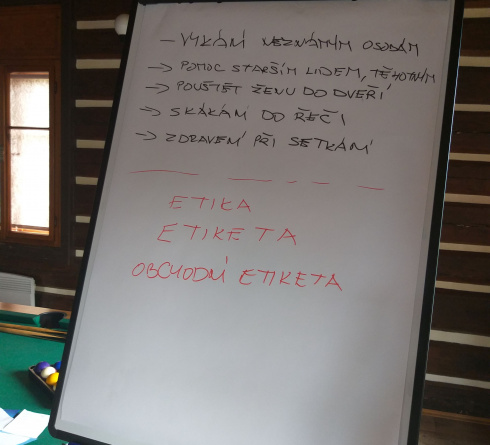 - VYKÁNÍ NEZNÁMÝM OSOBÁM
→ POMOC STARŠÍM LIDEM, TĚHOTNÝM
→ POUŠTĚT ŽENU DO DVEŘÍ
→ SKÁKÁNÍ DO ŘEČI
→ ZDRAVENÍ PŘI SETKÁNÍ
ETIKA
ETIKETA
OBCHODNÍ ETIKETA